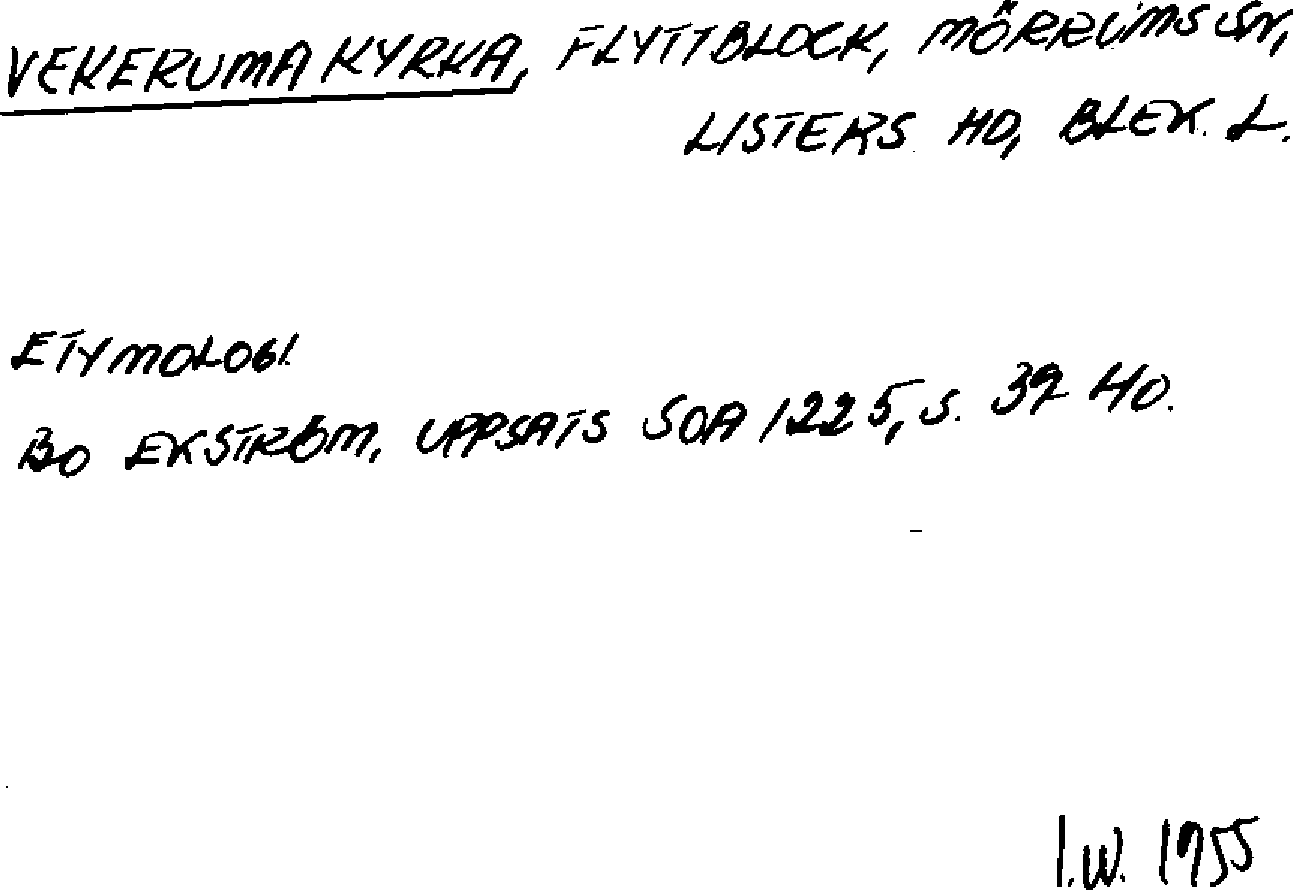 VEKERUMA KYRKA, FLYTTBLOCK, MÖRRUMS SN,
LISTERS HD, BLEK. L.
ETYMOLOGI.
BO EKSTRÖM, UPPSATS SOA 1225, S. 39 40.
I.W. 1955